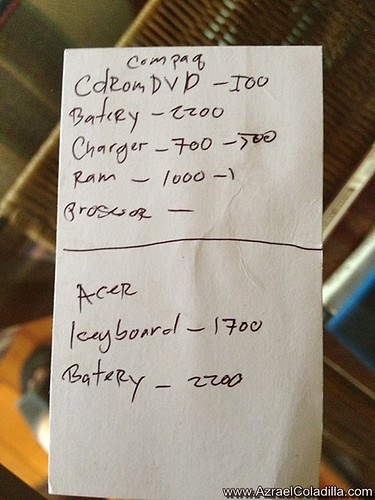 Compaq
CdRomDVD - 500
Batery - 2200
Charger - 700 - 500
Ram - 1000 - 1
Prosesor —
Acer
keyboard - 1700
Batery - 2200
www.AzraelColadilla.com